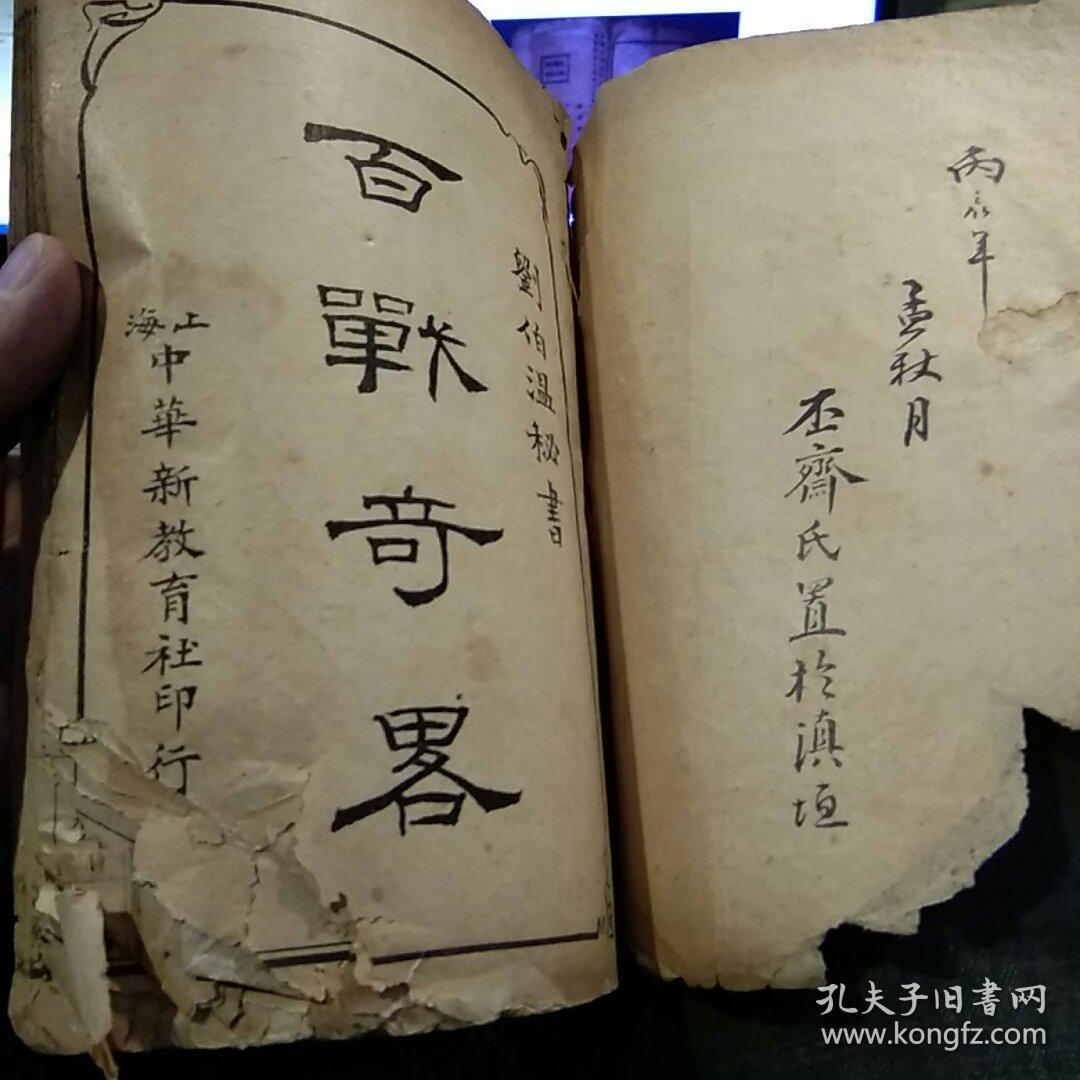 丙辰年
孟秋月
丕齋氏置於滇垣
劉伯温秘書
百戰奇畧
上海
中華新教育社印行
孔夫子旧書网
www.kongfz.com